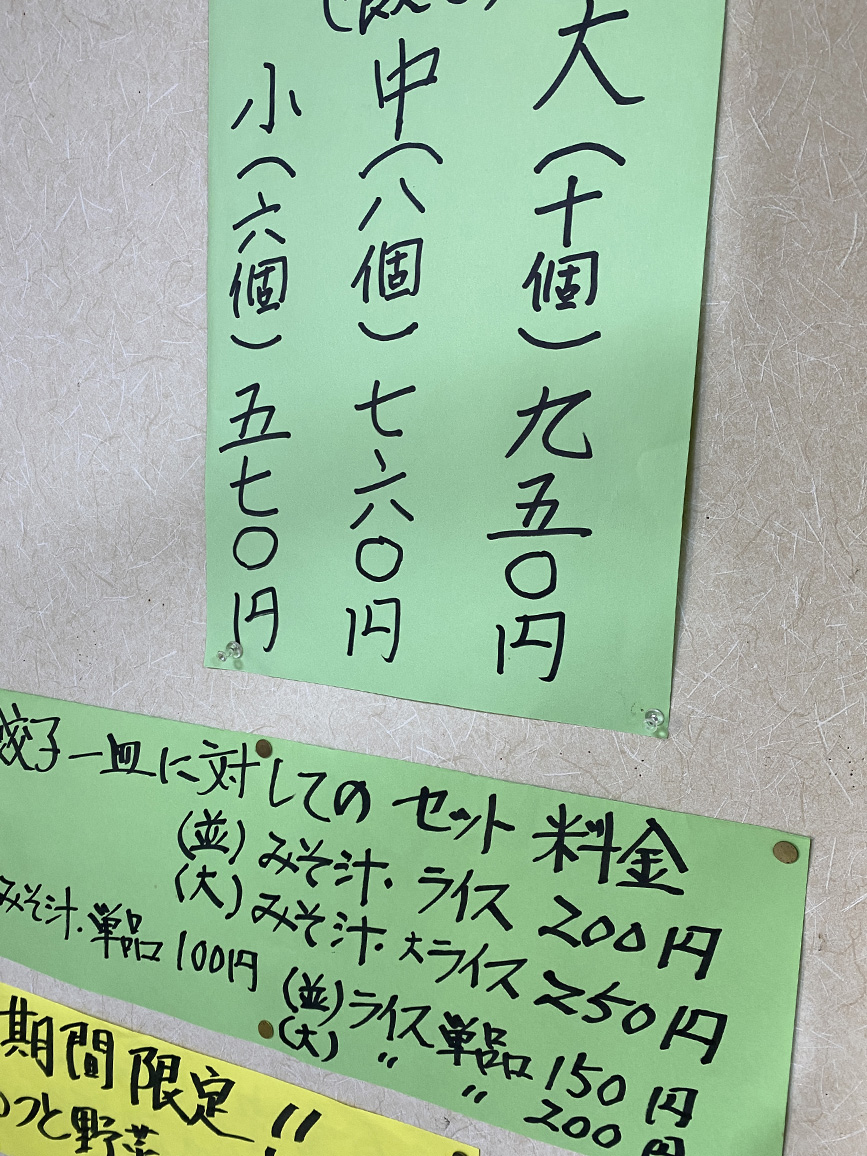 大(十個)九五〇円
中(八個)七六〇円
小(六個)五七〇円
餃子一皿に対してのセット料金
(並)みそ汁.ライス 200円
(大)みそ汁.大ライス 250円
みそ汁.単品 100円
(並)ライス単品 150円
(大) 〃 〃 200円
期間限定!!
っと野菜